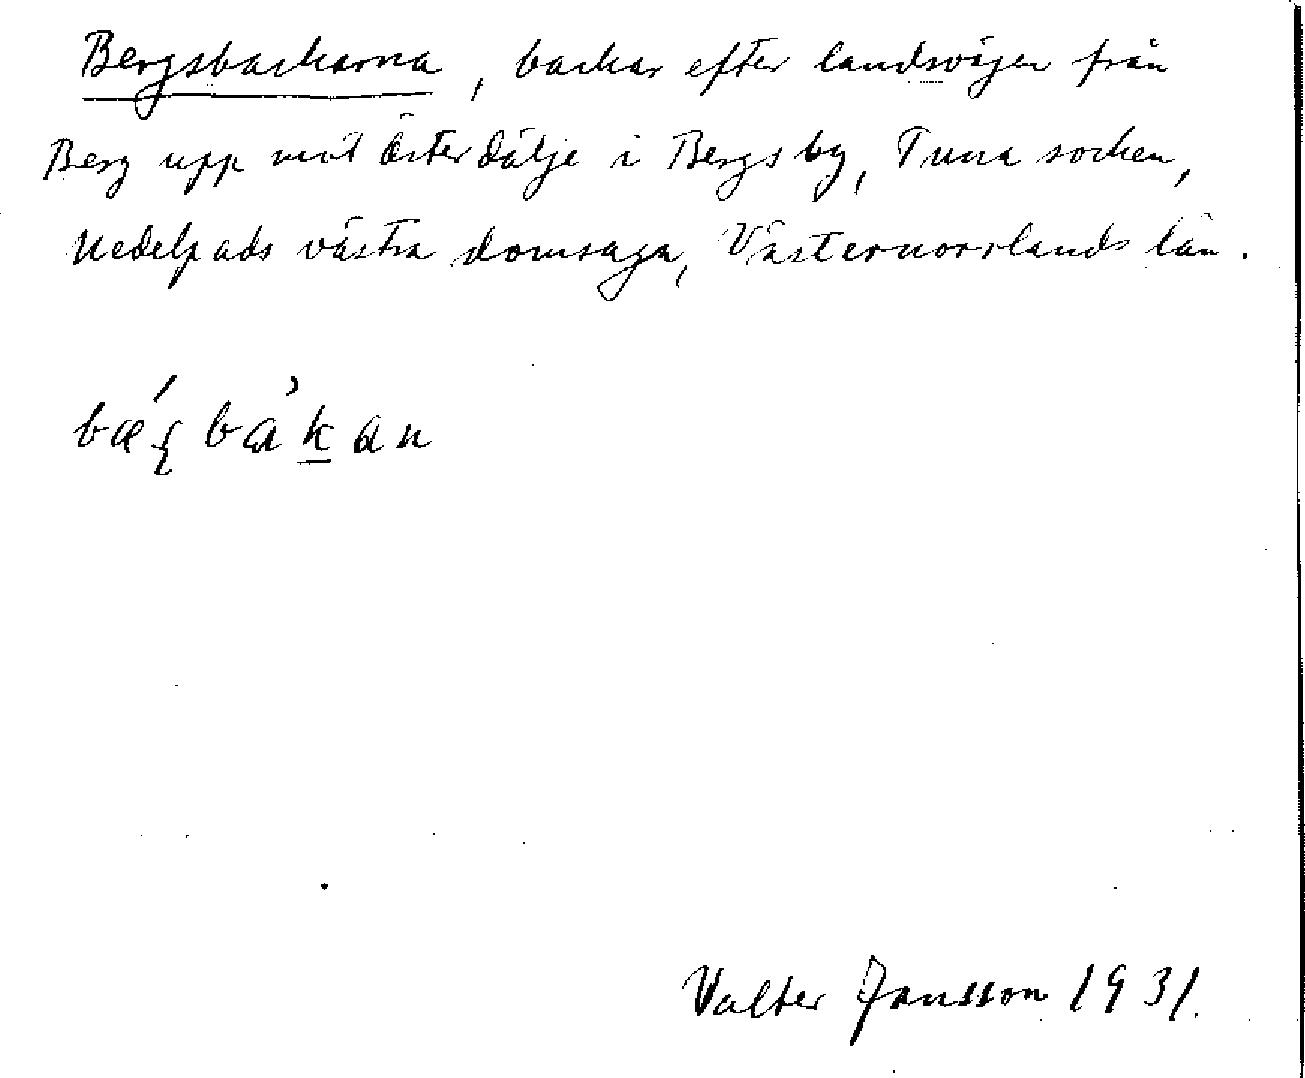 Bergsbackarna, backar efter landsvägen från
Berg upp mot Österdälje i Bergsby, Tuna socken,
Medelpads västra domsaga, Västernorrlands län.
Valter Jansson 1931.